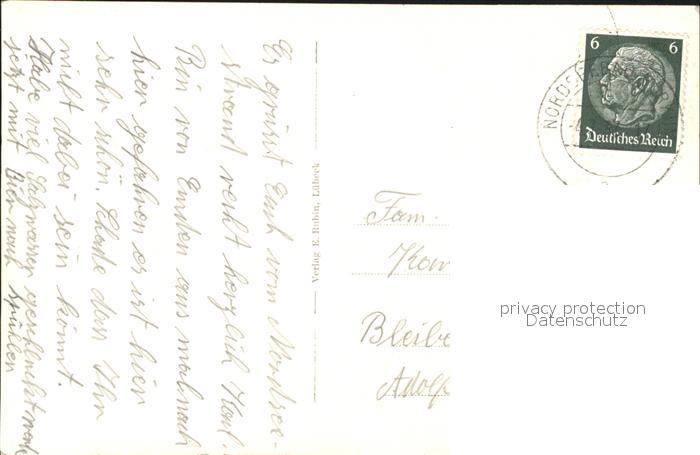 Es grüsst Euch vom Nordsee-
strand recht herzlich Karl.
Bin von Emden aus mal nach
hier gefahren es ist hier
sehr schön. Schade das Ihr
nicht dabei sein könnt.
Habe viel Salzwasser geschluckt muß
jetzt mit Bier nach spüllen
Verlag E. Rubin, Lübeck
6 6
Deutsches Reich
Fam.
Bleibe
Adolf
privacy protection
Datenschutz